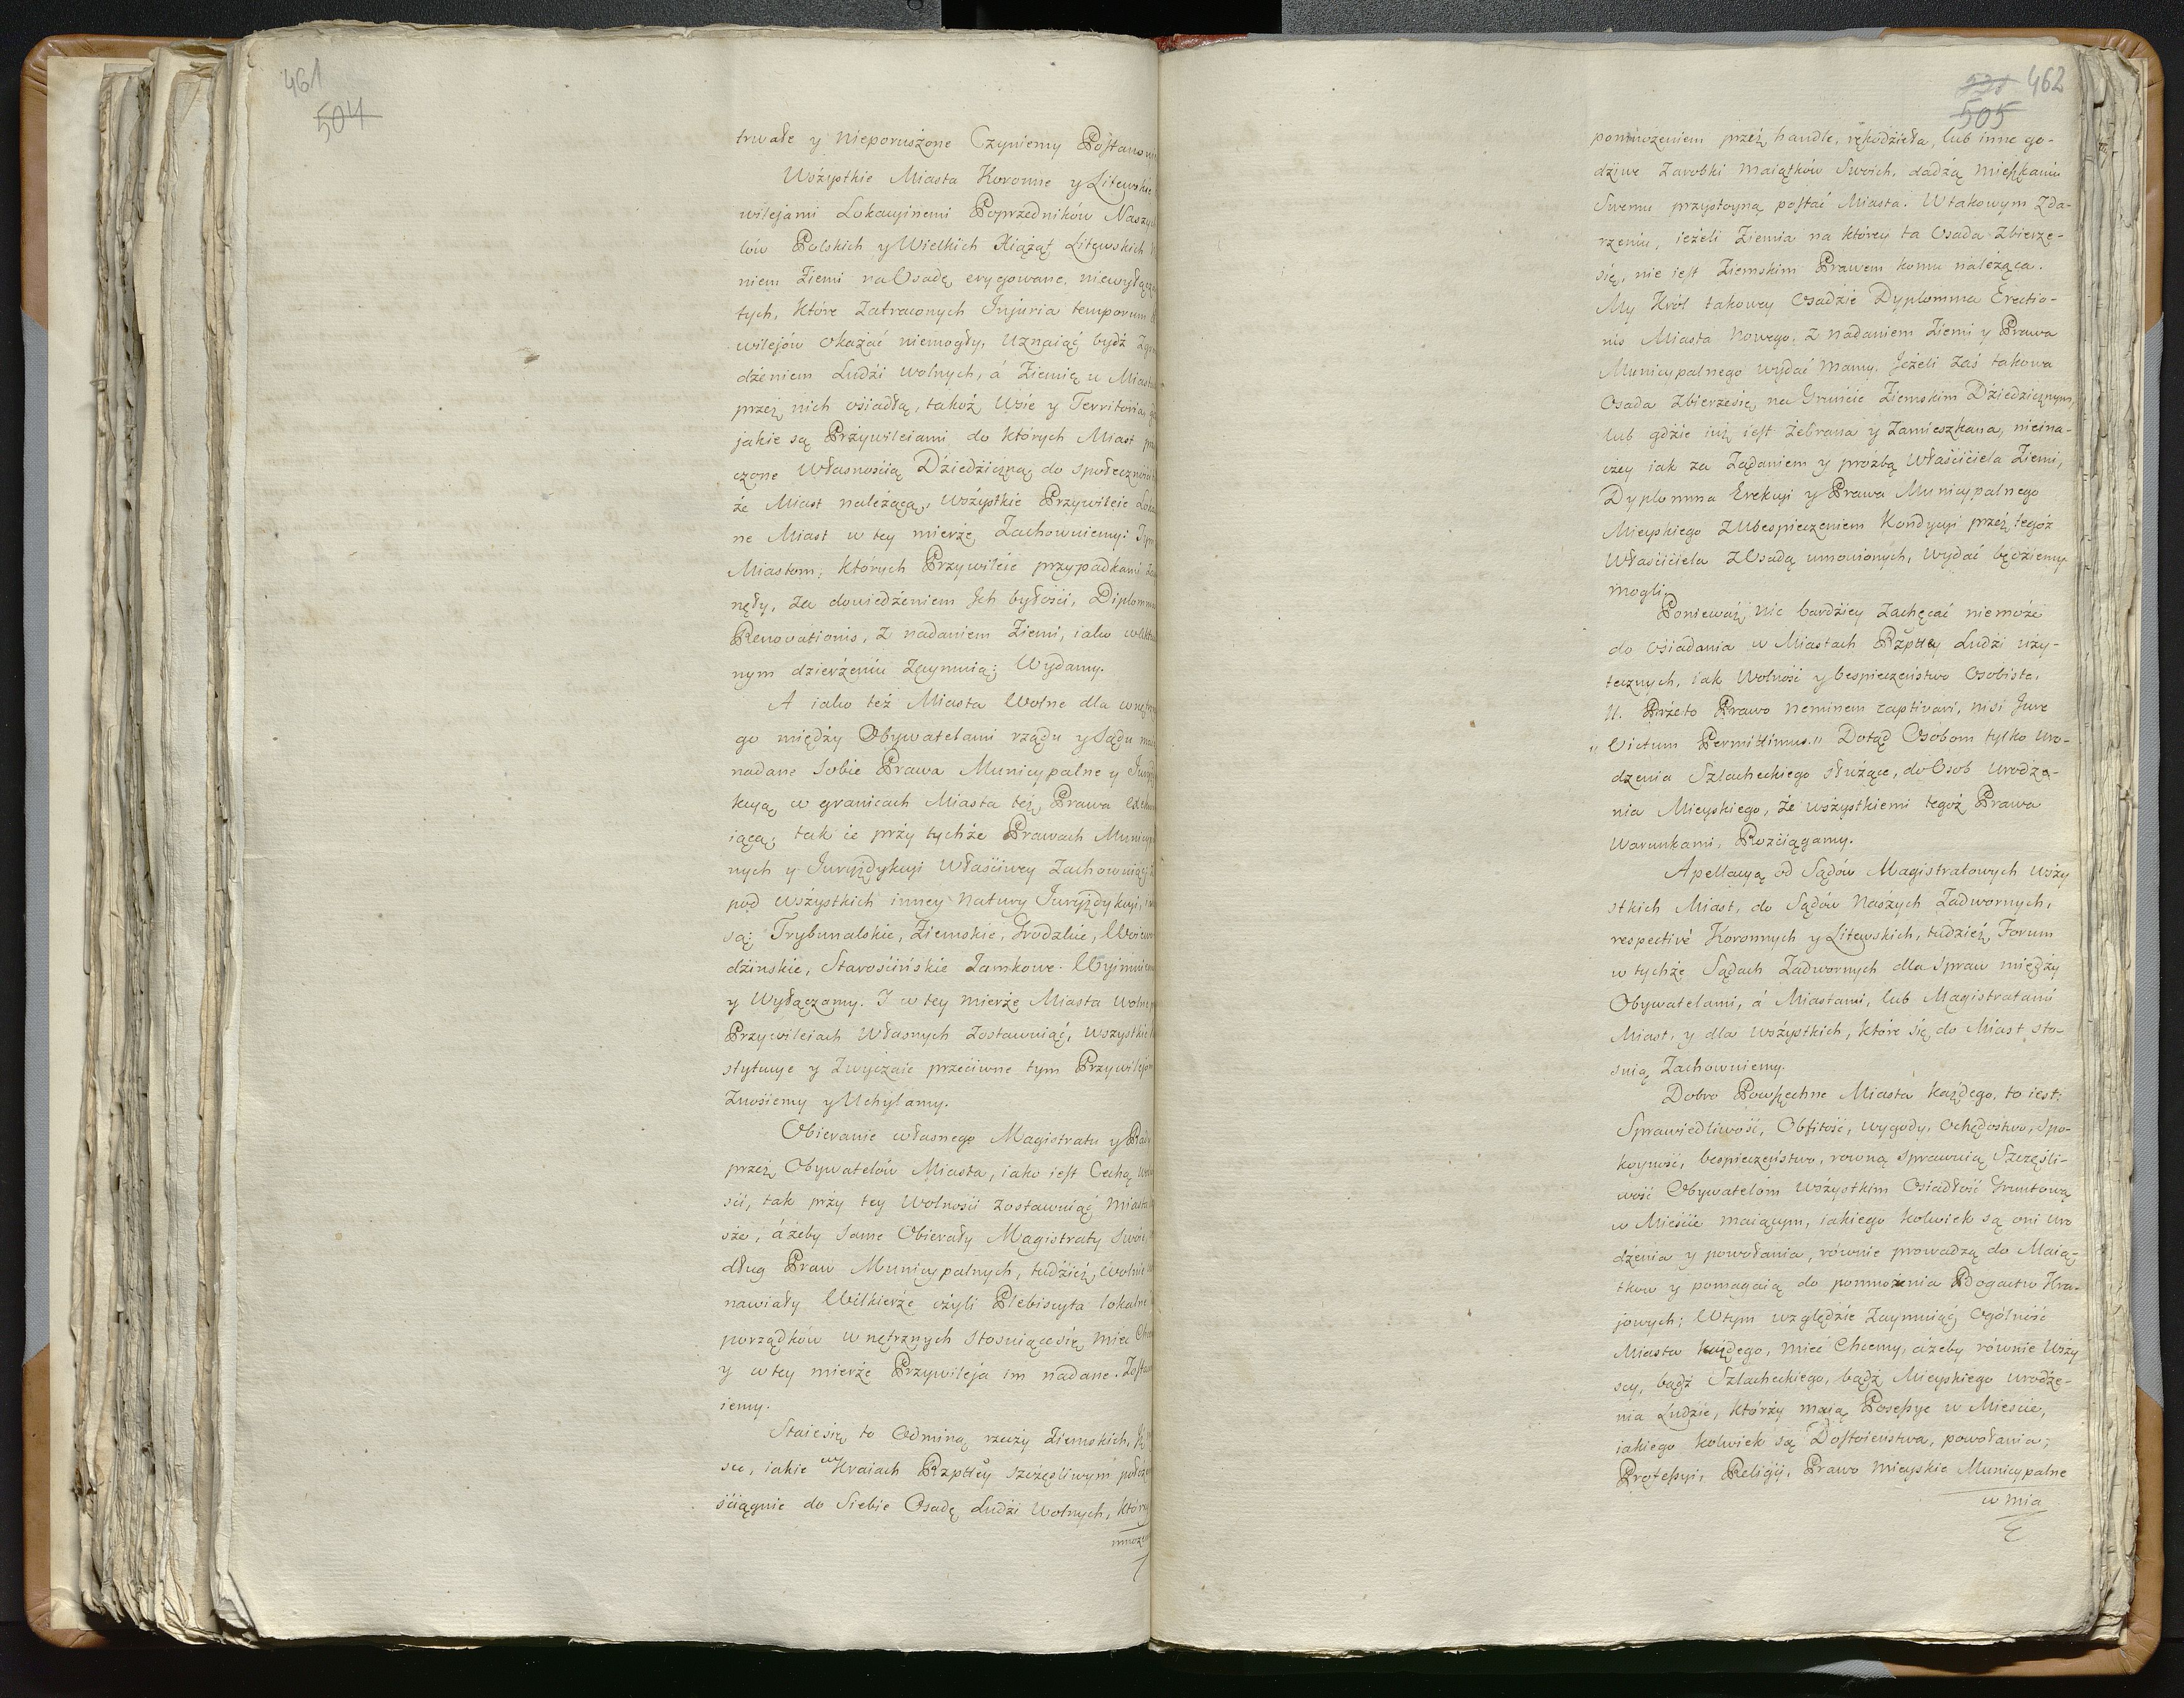 461
504
trwałe y nieporuszone Czyniemy
Wszystkie Miasta Koronne y Litewskie
wilejami Lokacyinemi Poprzedników
lów Polskich y Wielkich Xiążąt Litewskich
niem Ziemi na Osadę erygowane,
tych, które Zatraconych Injuria temporum
wilejów okazać niemogły, Uznaiąć bydź
dzeniem Ludzi wolnych, á Ziemię u
przez nich osiadłą, takoż Wsie y Territoria
jakie są Przywileiami do których Miast
czone Własnością Dziedziczną do
że Miast należącą, wszystkie Przywileie
ne Miast w tey mierże Zachowuiemy:
Miastom, których Przywileie przypadkami
nęły, za dowiedzeniem Jch byłości,
Renovationis, z nadaniem Ziemi, iako
nym dzierżeniu Zaymuią; Wydamy.
A iako też Miasta Wolne dla
go między Obywatelami rządu y Sądu
nadane Sobie Prawa Municypalne y
kcyą w granicach Miasta też Prawa
iącą; tak ie przy tychże Prawach
nych y Juryzdykcyi Właściwey
pod wszystkich inney natury Juryzdykcyi,
są: Trybunalskie, Ziemskie, Grodzkie,
dzinskie, Starościńskie Zamkowe.
y Wyłączamy. I w tey mierże Miasta
Przywileiach Własnych Zostawuiąć,
stytucye y Zwyczaie przeciwne tym
Znosiemy y Uchylamy.
Obieranie własnego Magistratu y
przez Obywatelów Miasta, iako iest Cechą
ści, tak przy tey Wolności zostawuiąć
sze, áżeby Same Obierały Magistraty
dług Praw Municypalnych, tudzież
nawiały Wilkierże czyli Plebiscyta lokalne
porządków wnętrznych stosuiące się mieć
y w tey mierże Przywileja im nadane.
iemy.
Staie się to Odmianą rzeczy Ziemskich,
sce, iakie w Kraiach Rzpttey szczęśliwym
ściągnie do Siebie Osadę Ludzi Wolnych,
462
505
pomnożeniem przez handle, rękodzieła, lub inne go-
dziwe Zarobki maiątków Swoich, dadzą mieszkaniu
Swemu przystoyną postać Miasta. W takowym Zda-
rzeniu, ieżeli Ziemia na którey ta Osada Zbierze-
się, nie iest Ziemskim Prawem komu należąca.
My Król takowey Osadzie Dyplomma Erectio-
nis Miasta Nowego, z nadaniem Ziemi y Prawa
Municypalnego wydać mamy. Jeżeli zaś takowa
Osada Zbierzesię na Gruncie Ziemskim Dziedzicznym,
lub gdzie iuż iest Zebrana y Zamieszkana, nieina-
czey iak za Żądaniem y prozbą Właściciela Ziemi,
Dyplomma Erekcyi y Prawa Municypalnego
Mieyskiego z Ubespieczeniem Kondycyi przez tegoż
Właściciela z Osadą umowionych, wydać będziemy
mogli.
Ponieważ nic bardziey zachęcać niemoże
do osiadania w Miastach Rzpttey Ludzi uży-
tecznych, iak Wolność y bespieczeństwo Osobiste.
11. Przeto Prawo Neminem captivari, nisi Jure
„Victum Permittimus.“ Dotąd Osobom tylko Uro-
dzenia Szlacheckiego służące, do Osob urodze-
nia Mieyskiego, ze wszystkiemi tegoż Prawa
Warunkami, Rozciągamy.
Apellacyą od Sądów Magistratowych wszy
stkich Miast, do Sądów Naszych Zadwornych,
respectivé Koronnych y Litewskich, tudzież Forum
w tychże Sądach Zadwornych dla Spraw między
Obywatelami, á Miastami, lub Magistratami
Miast, y dla wszystkich, które się do Miast sto-
suią Zachowuiemy.
Dobro Powszechne Miasta każdego, to iest:
Sprawiedliwość, Obfitość, wygody, Ochędostwo, Spo-
koyność, bespieczeństwo, rowną Sprawuią Szczęśli-
wość Obywatelom wszystkim Osiadłość Gruntową
w Mieście maiącym, iakiego kolwiek są oni uro
dzenia y powołania, równie prowadzą do Maią-
tkow y pomagaią do pomnożenia Bogactw Kra-
jowych; W tym względzie Zaymuiąć Ogólność
Miasta każdego, mieć Chcemy, áżeby równie Wszy
scy, bądź Szlacheckiego, bądź Mieyskiego urodze-
nia Ludzie, którzy maią Possessye w Mieście,
iakiego kolwiek są Dostoieństwa, powołania,
Professyi, Religij, Prawo mieyskie Municypalne
w mia